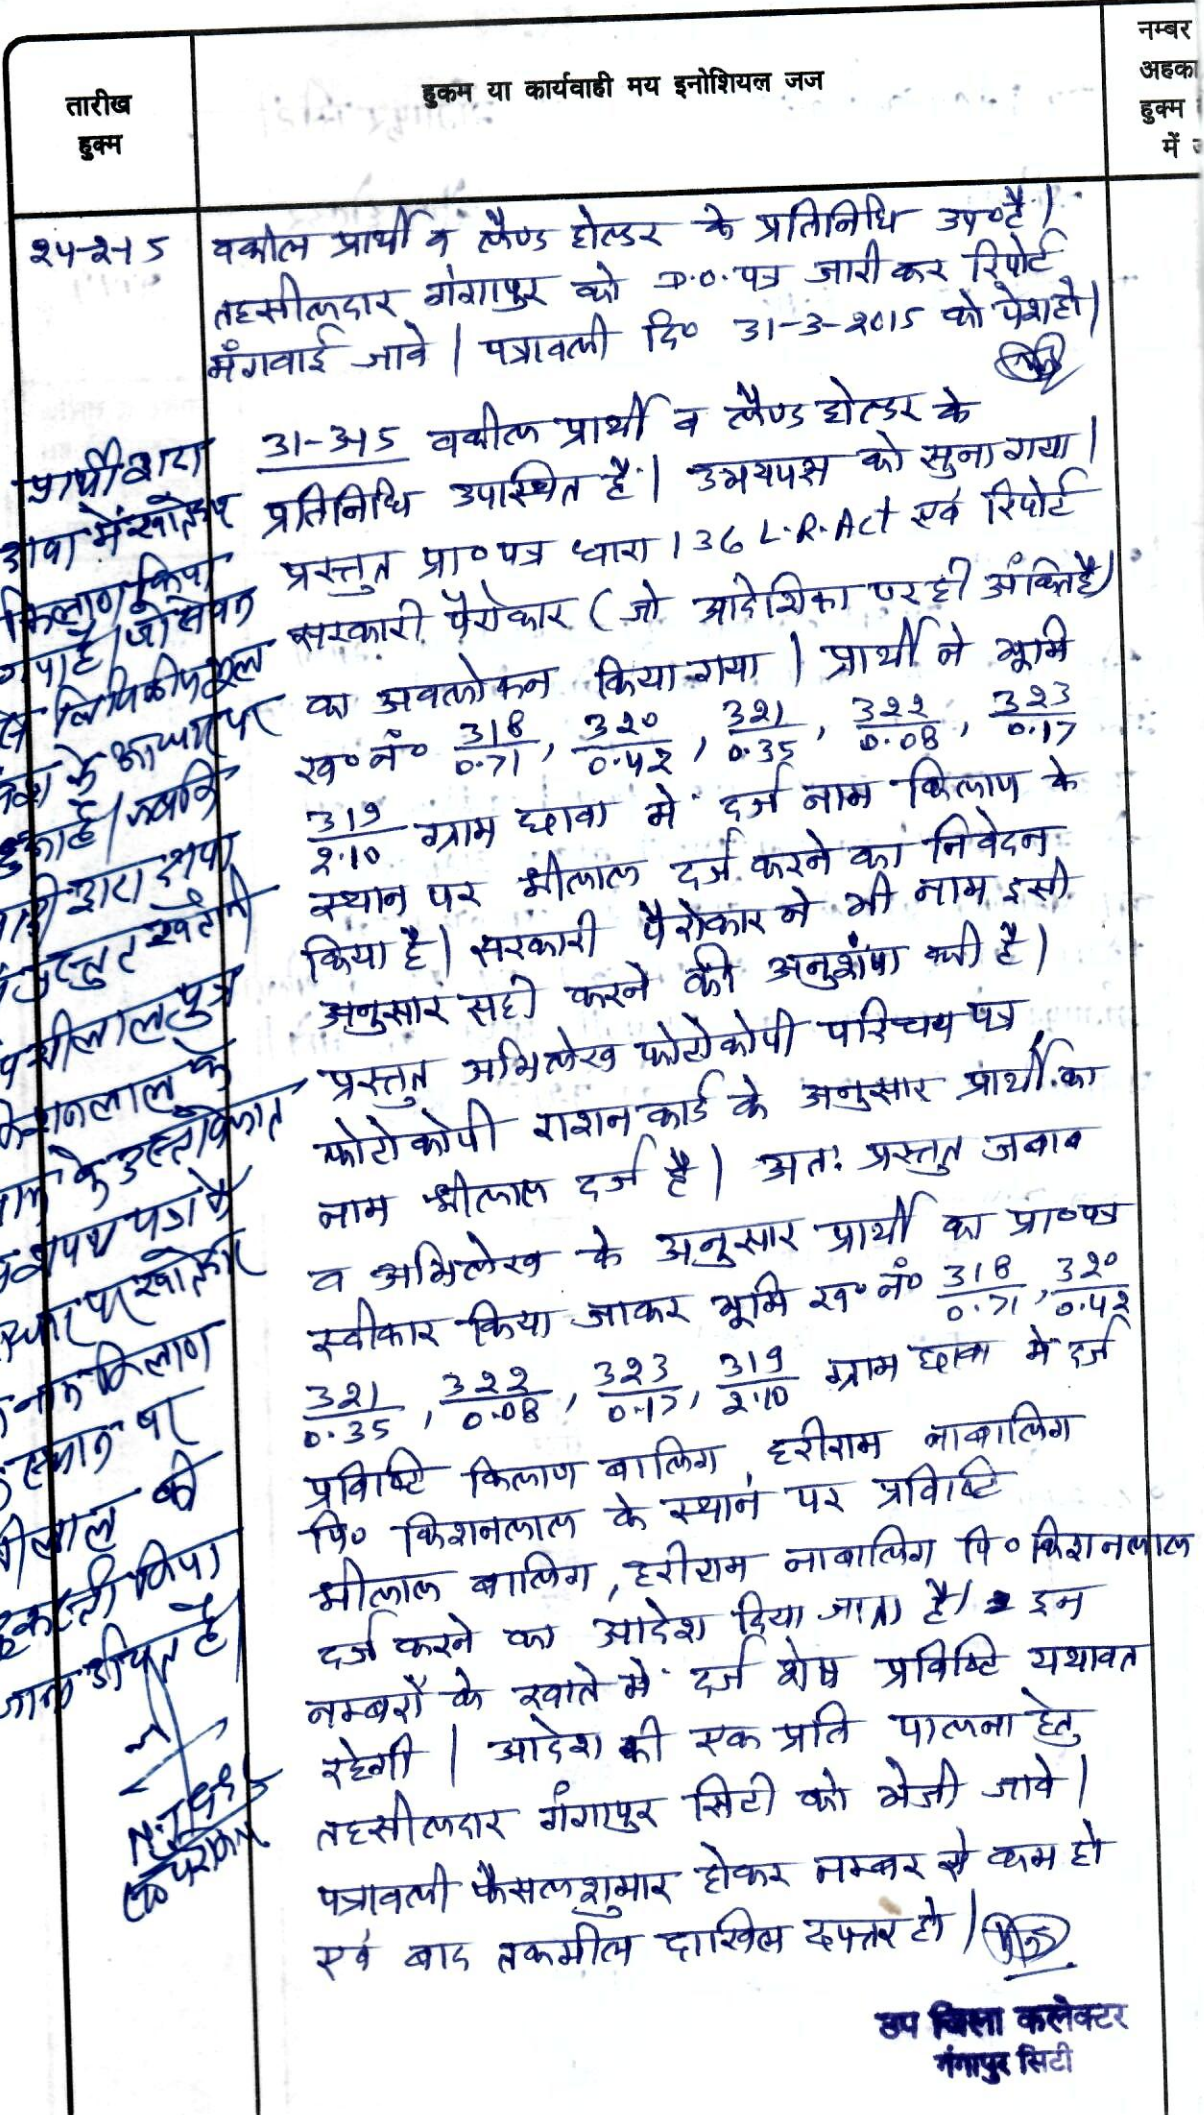 तारीख
हुक्म
हुकम या कार्यवाही मय इनोशियल जज
नम्बर
अहका
हुक्म
में
24-2-15 वकील प्रार्थी व लैण्ड होल्डर के प्रतिनिधि उप० है।
तहसीलदार गंगापुर को D.O. पत्र जारी कर रिपोर्ट
मंगवाई जावे। पत्रावली दि० 31-3-2015 को पेश हो।
31-3-15 वकील प्रार्थी व लैण्ड होल्डर के
प्रतिनिधि उपस्थित है। उभयपक्ष को सुना गया।
प्रस्तुत प्रा०पत्र धारा 136 L.R. Act एवं रिपोर्ट
सरकारी पैरोकार (जो आदेशिका पर ही अंकित है)
का अवलोकन किया गया। प्रार्थी ने भूमि
ख० नं० 318/0.71, 320/0.42, 321/0.35, 322/0.08, 323/0.17
319/2.10 ग्राम छावा मे दर्ज नाम किलाण के
स्थान पर श्रीलाल दर्ज करने का निवेदन
किया है। सरकारी पैरोकार ने भी नाम इसी
अनुसार सही करने की अनुशंषा की है।
प्रस्तुत अभिलेख फोटोकोपी परिचय पत्र,
फोटोकोपी राशन कार्ड के अनुसार प्रार्थी का
नाम श्रीलाल दर्ज है। अतः प्रस्तुत जबाब
व अभिलेख के अनुसार प्रार्थी का प्रा०पत्र
स्वीकार किया जाकर भूमि ख० नं० 318/0.71, 320/0.42
321/0.35, 322/0.08, 323/0.17, 319/2.10 ग्राम छावा मे दर्ज
प्रविष्टि किलाण बालिग, हरीराम नाबालिग
पि० किशनलाल के स्थान पर प्रविष्टि
श्रीलाल बालिग, हरीराम नाबालिग पि० किशनलाल
दर्ज करने का आदेश दिया जाता है। इन
नम्बरों के खाते मे दर्ज शेष प्रविष्टि यथावत
रहेगी। आदेश की एक प्रति पालना हेतु
तहसीलदार गंगापुर सिटी को भेजी जावे।
पत्रावली फैसल शुमार होकर नम्बर से कम हो
एवं बाद तकमील दाखिल दफ्तर हो।
उप जिला कलेक्टर
गंगापुर सिटी
प्रार्थी द्वारा
छावा में खातेदार
किलाण किया
गया है।
लिपिकीय भूल
के आधार पर
द्वारा शपथ
प्रस्तुत
श्रीलाल पुत्र
किशनलाल के
शपथ पत्र के
आधार पर खातेदार
नाम किलाण
स्थान पर
श्रीलाल की
किया
जाना उचित है।